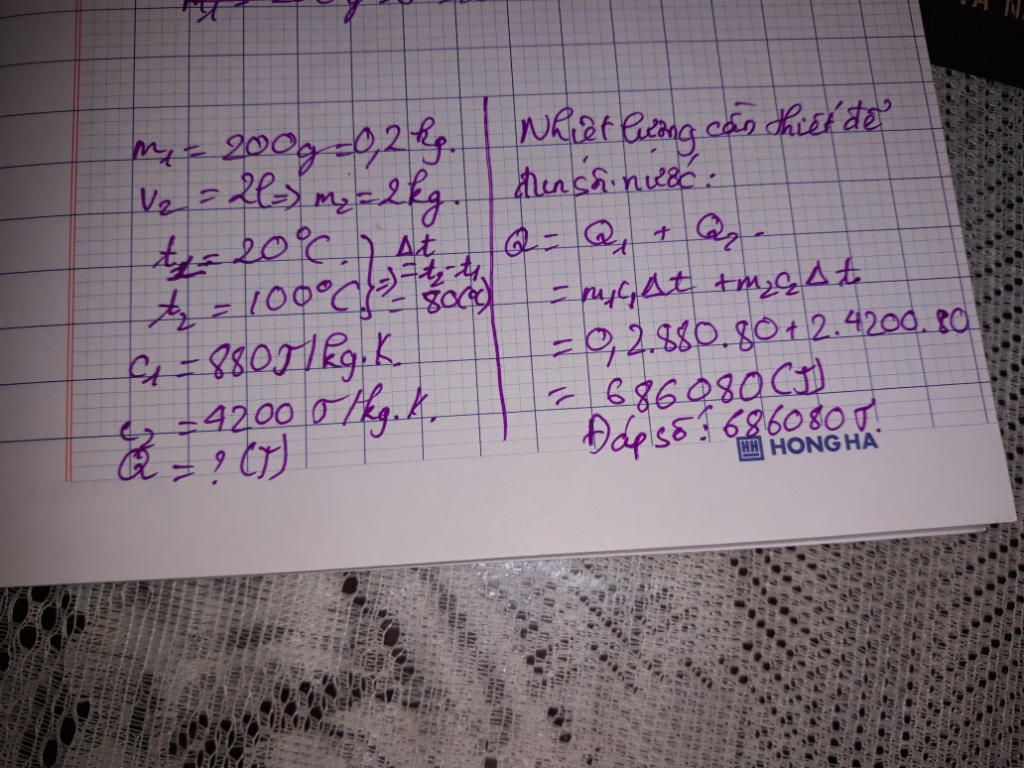 m₁ = 200g = 0,2 kg.
V₂ = 2l => m₂ = 2kg.
t₁ = 20°C.
t₂ = 100°C
} => Δt
= t₂ - t₁
= 80(°C)
c₁ = 880J/kg.K
c₂ = 4200 J/kg.K.
Q = ? (J)
Nhiệt lượng cần thiết để
đun sôi nước:
Q = Q₁ + Q₂.
= m₁c₁Δt + m₂c₂Δt
= 0,2.880.80 + 2.4200.80
= 686080(J)
Đáp số: 686080J.
HH HONG HA